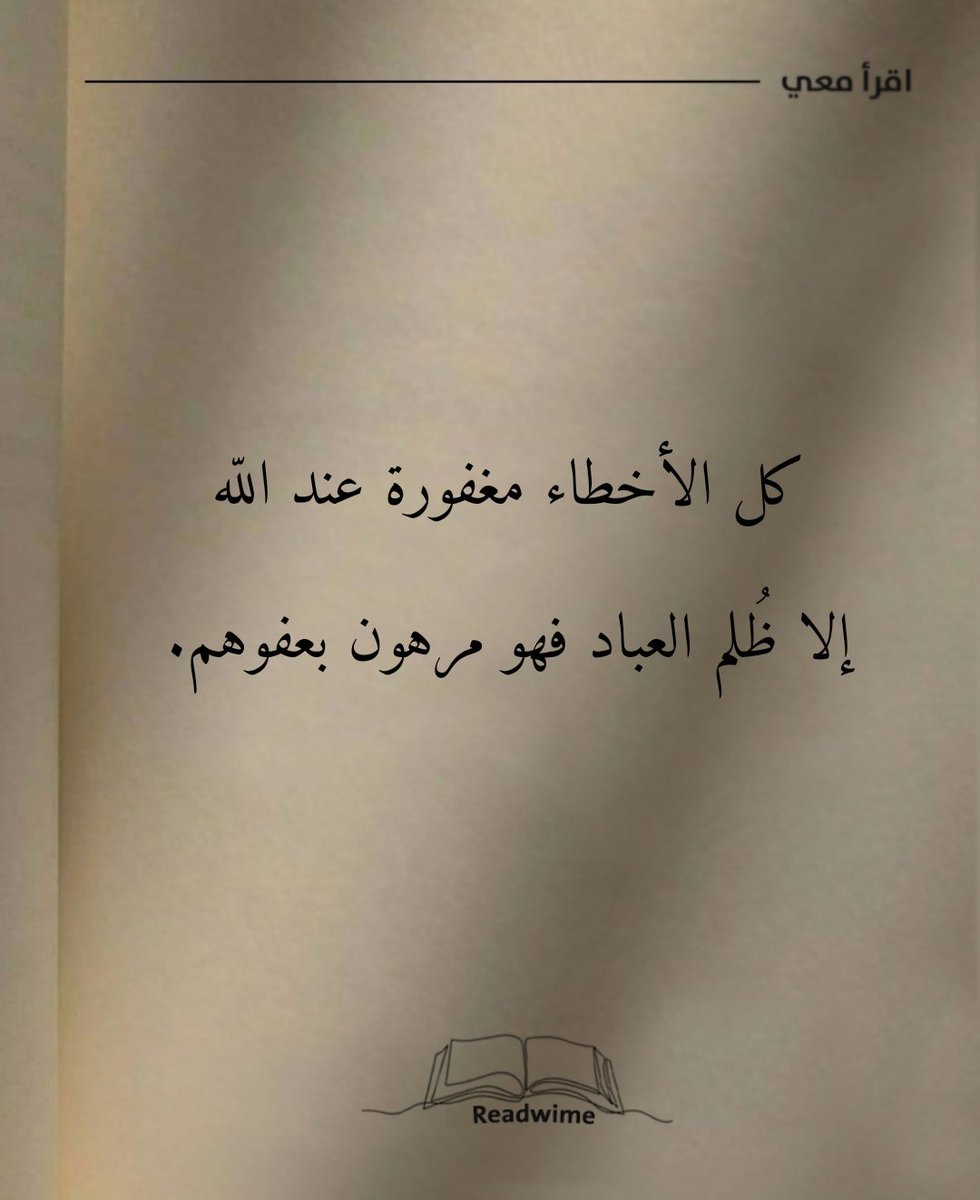 اقرأ معي
كل الأخطاء مغفورة عند الله
إلا ظُلم العباد فهو مرهون بعفوهم.
Readwime